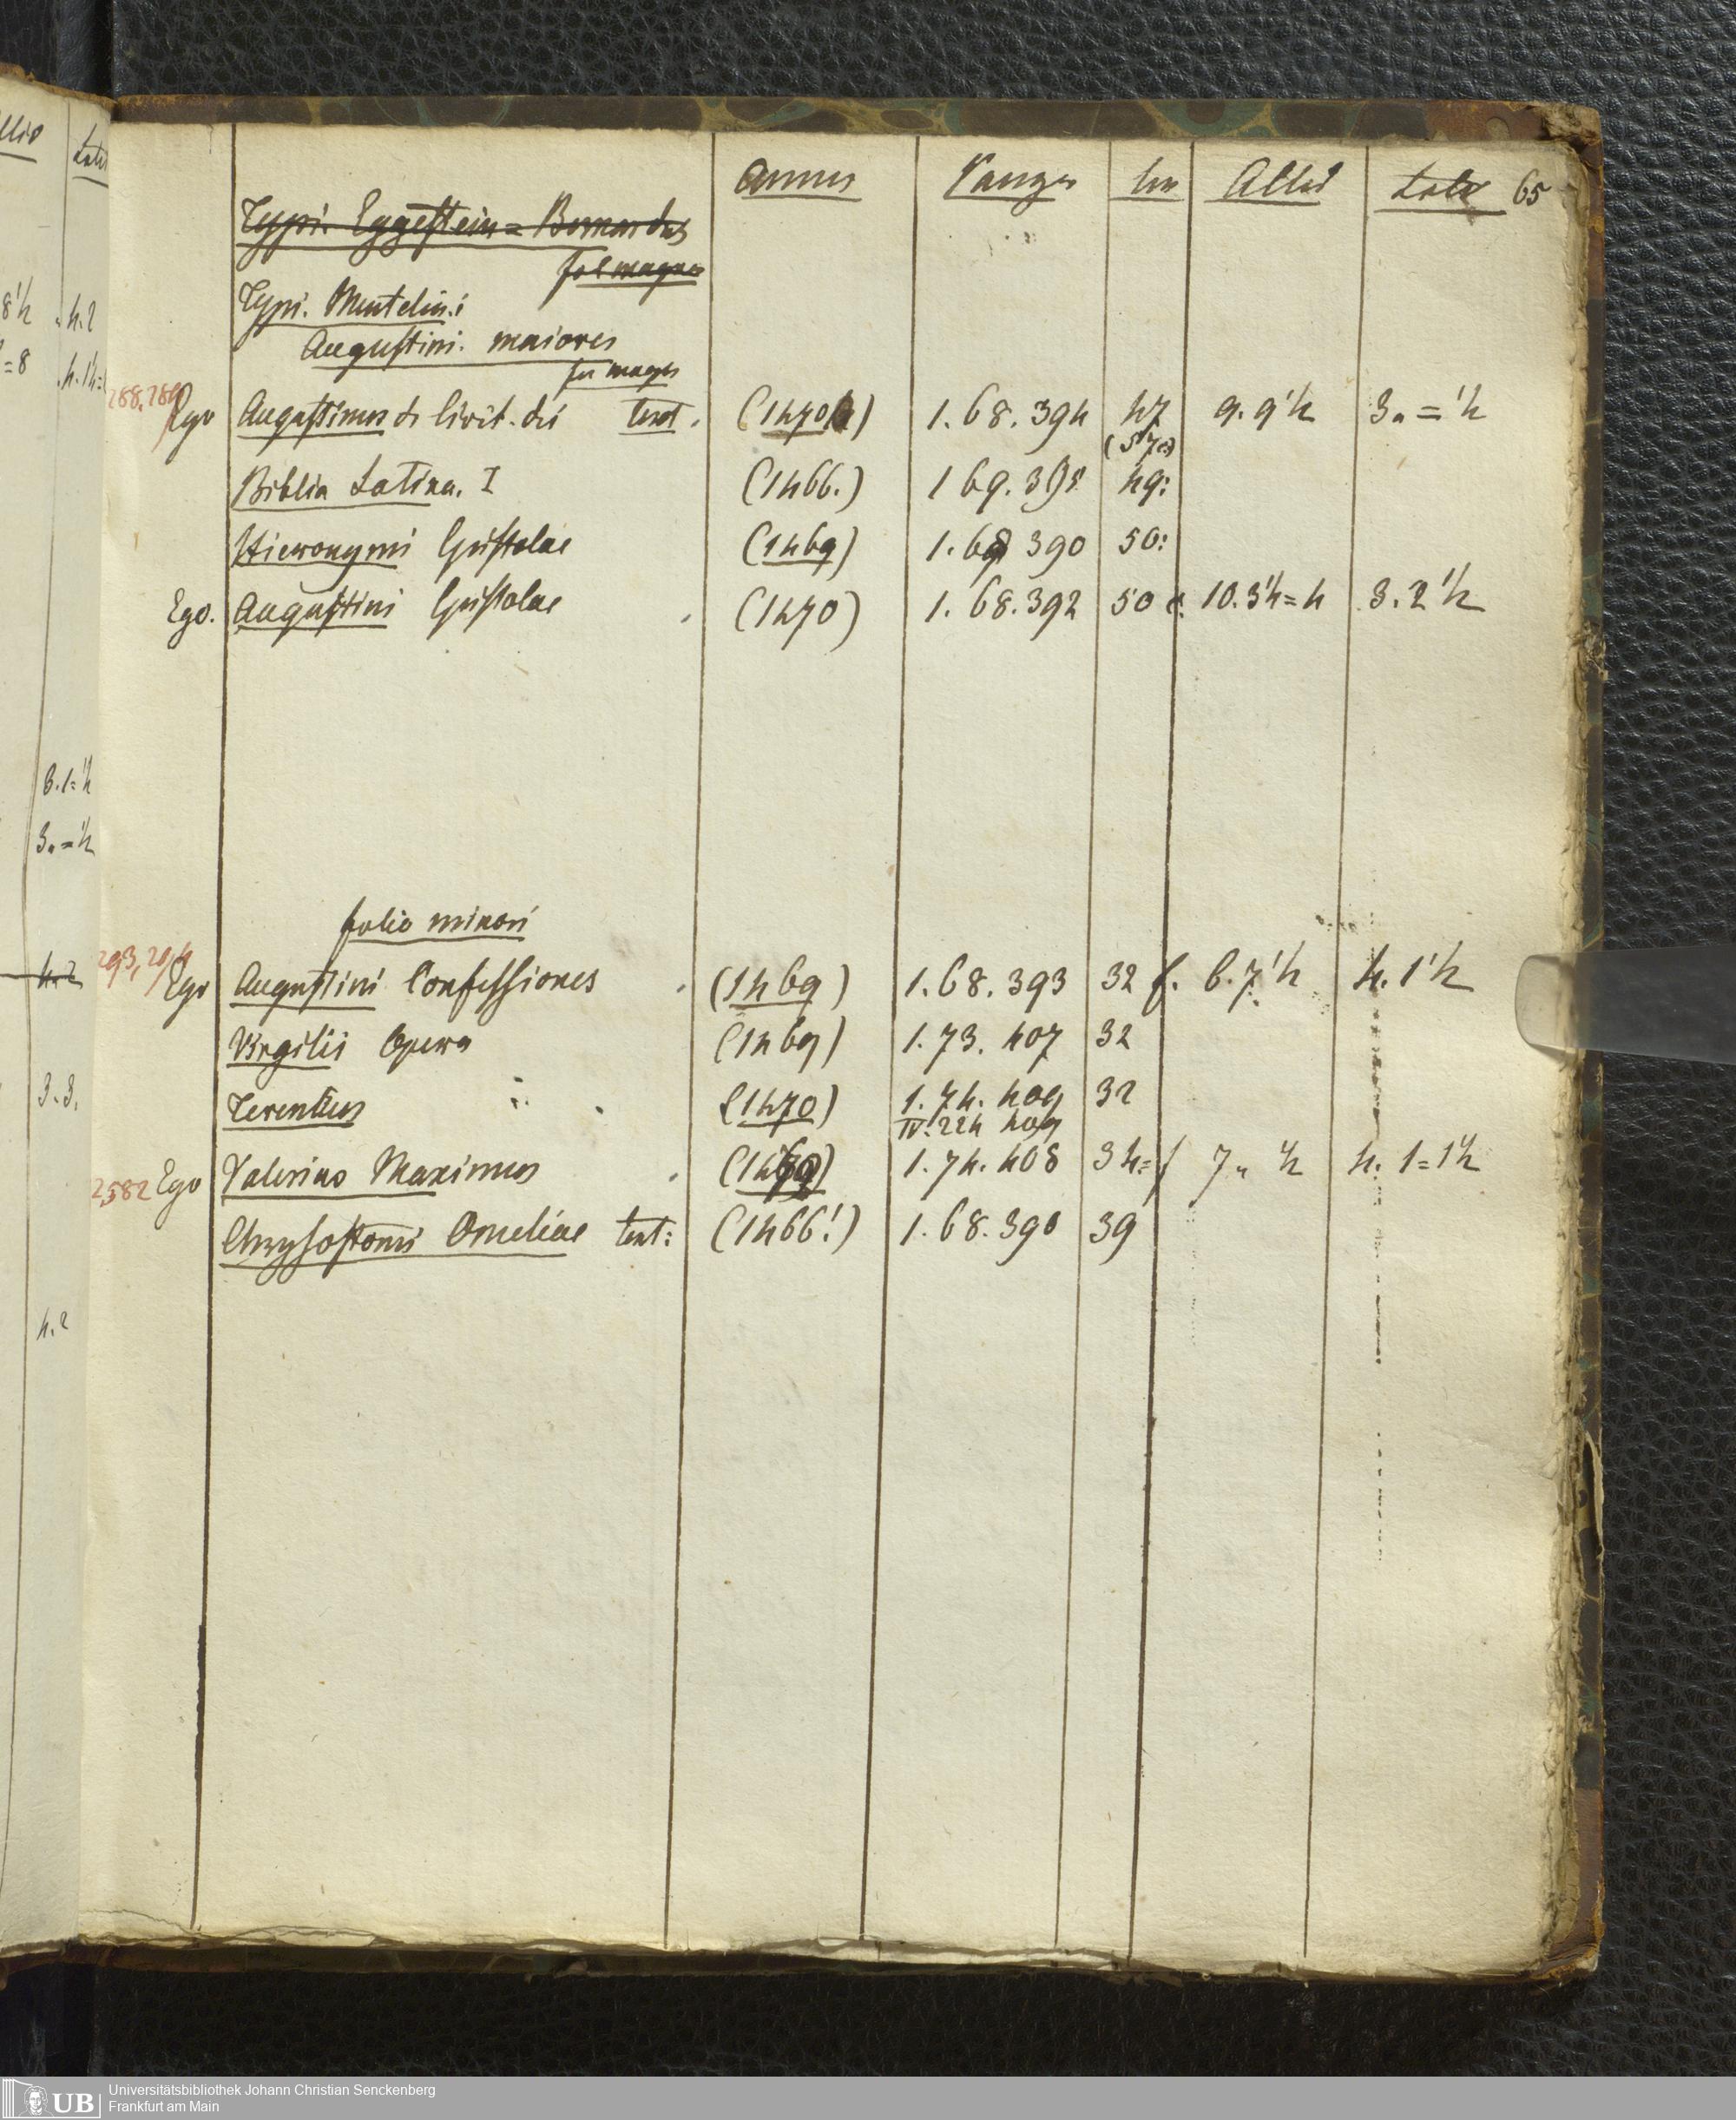 Annus Panzer lin Altid Latit 65
Typi Eggestein = Bernardus
fol magno
Typi. Mentelini
Augustini. maiores
fol magno
288.289
Ego Augustinus d Civit. dei text. (1470) 1.68.394 47 9.9½ 3„=½
(570)
Biblia Latina. I (1466.) 1 69.398 49:
Hieronymi Epistolae (1469) 1.69 390 50:
Ego. Augustini Epistolae (1470) 1.68.392 50 10.3½=4 3.2½
folio minori
293,294
Ego Augustini Confessiones (1469) 1.68.393 32 f. 6.7½ 4.1½
Virgilii Opera (1469) 1.73.407 32
Terentius (1470) 1.74.409 32
IV.224 409
2582 Ego Valerius Maximus 1.74.408 34=f 7„½ 4.1=1½
Chrysostomi Omeliae text: (1466!) 1.68.390 39
8½ 4.2
=8 4.1½=
3.1=½
3„=½
4.2
3.3.
4.2
UB Universitätsbibliothek Johann Christian Senckenberg
Frankfurt am Main